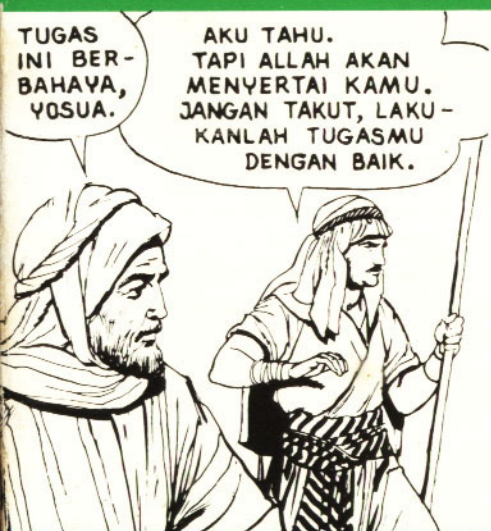 TUGAS
INI BER-
BAHAYA,
YOSUA.
AKU TAHU.
TAPI ALLAH AKAN
MENYERTAI KAMU.
JANGAN TAKUT, LAKU-
KANLAH TUGASMU
DENGAN BAIK.